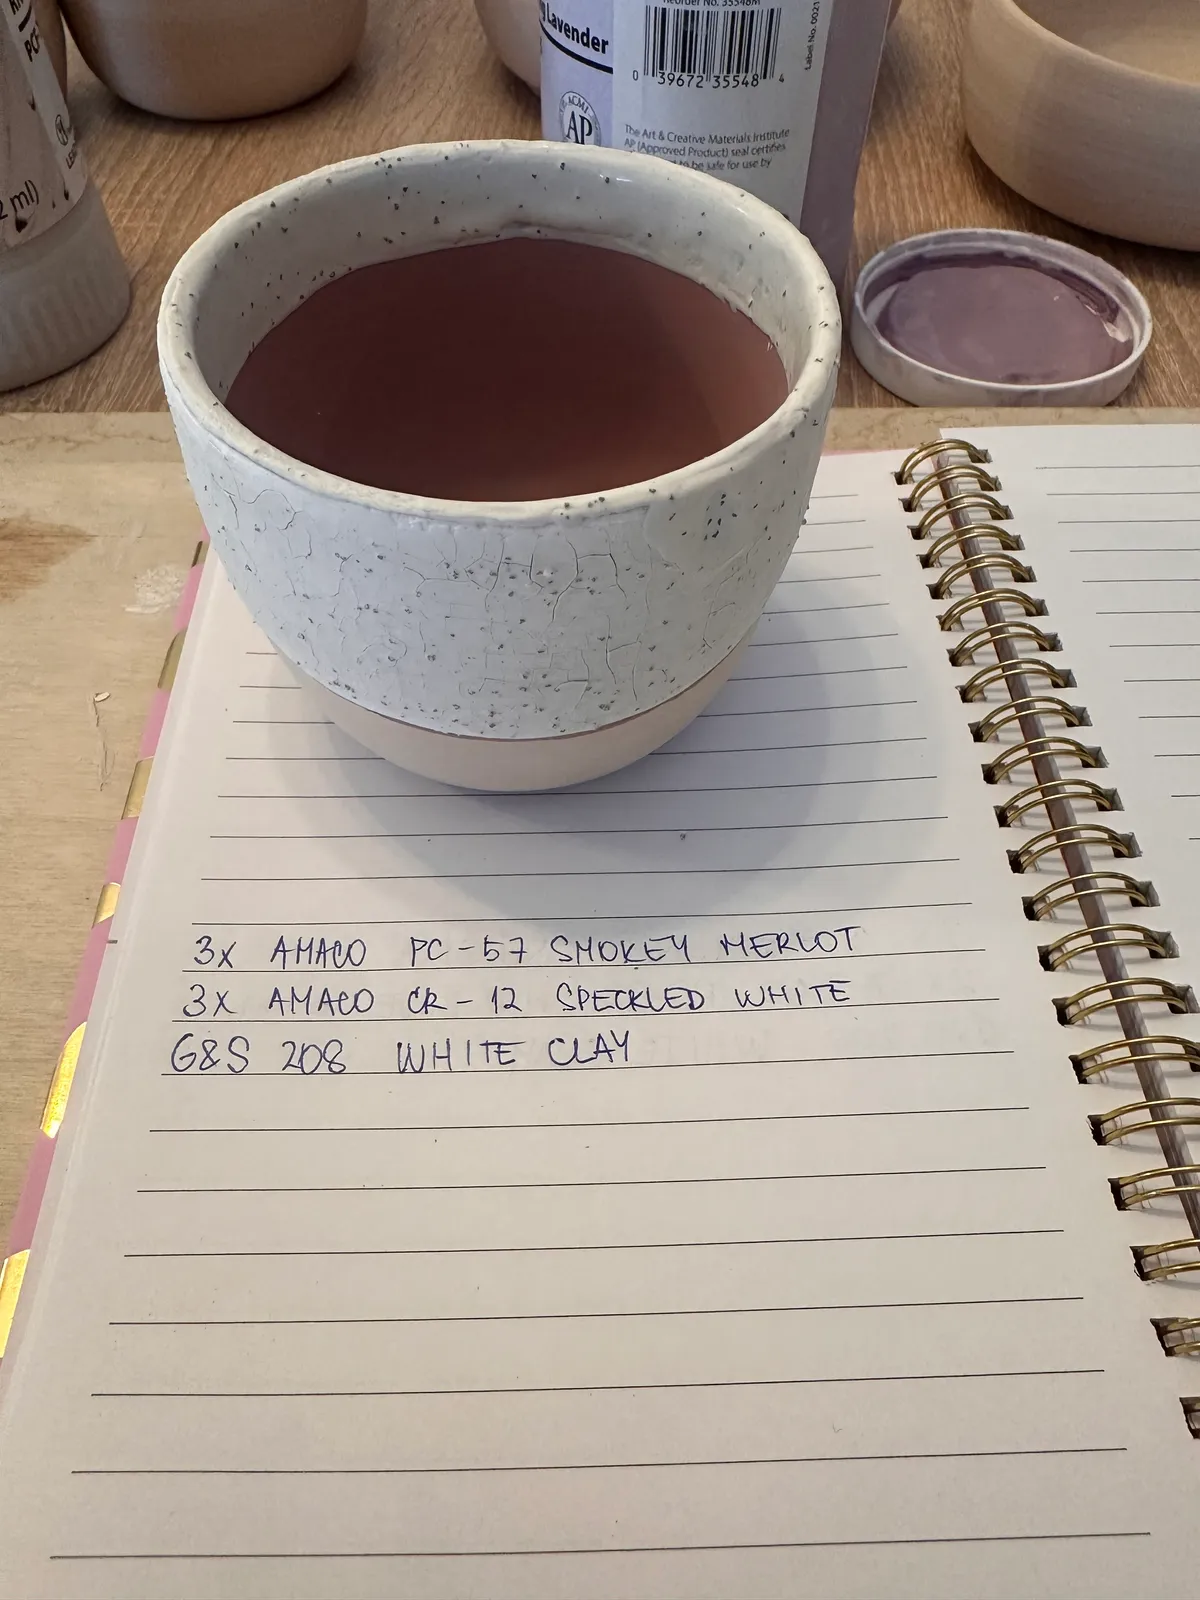 PC
2 ml)
Lavender
Reorder No. 35548M
0 39672 35548 4
Label No. 0021
ACMI
AP
The Art & Creative Materials Institute
AP (Approved Product) seal certifies
to be safe for use by
3X AMACO PC-57 SMOKEY MERLOT
3X AMACO CR-12 SPECKLED WHITE
G&S 208 WHITE CLAY